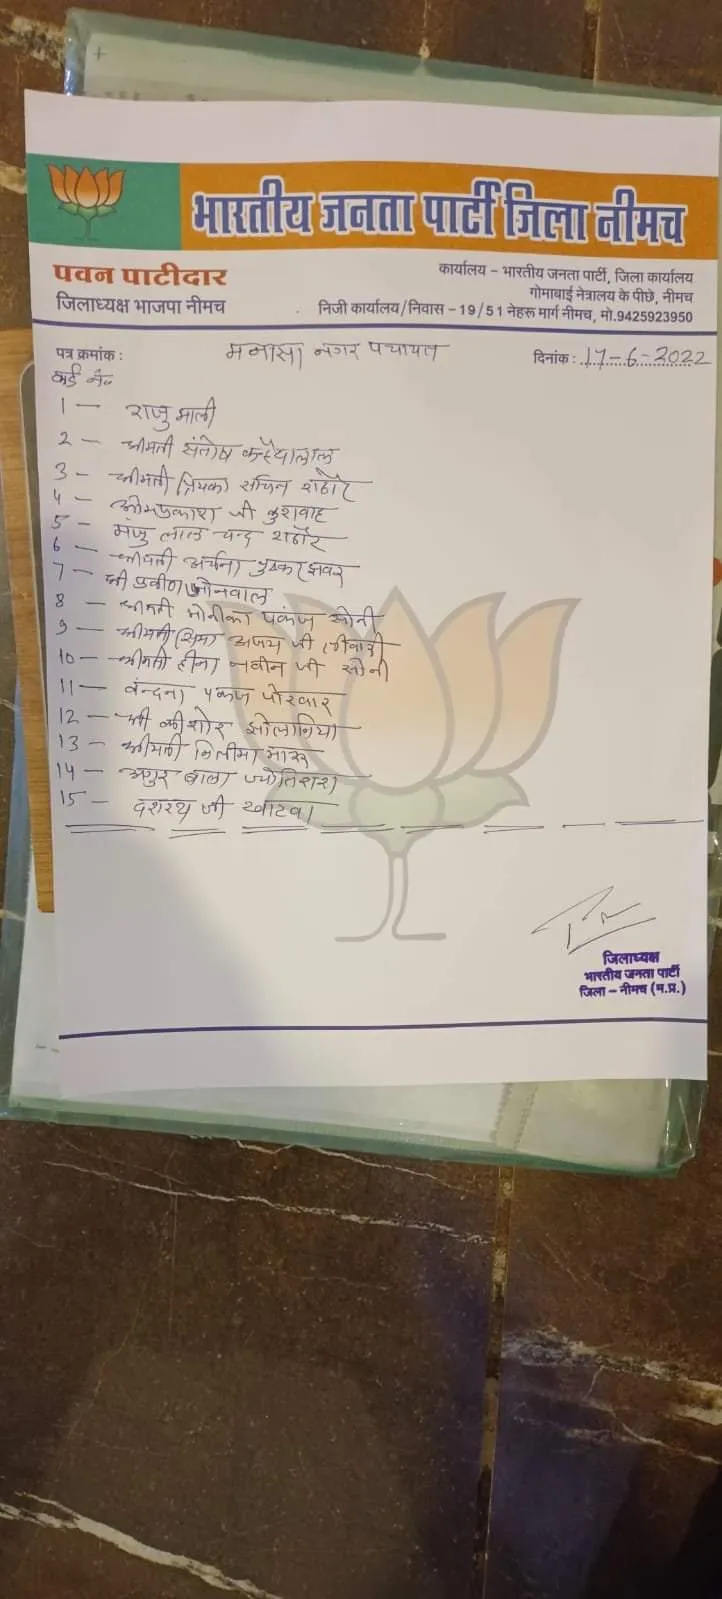 भारतीय जनता पार्टी जिला नीमच
पवन पाटीदार
जिलाध्यक्ष भाजपा नीमच
कार्यालय – भारतीय जनता पार्टी, जिला कार्यालय
गोमाबाई नेत्रालय के पीछे, नीमच
निजी कार्यालय/निवास – 19/51 नेहरू मार्ग नीमच, मो.9425923950
पत्र क्रमांक :
मनासा नगर पंचायत
दिनांक : 17-6-2022
वार्ड नं०
1 — राजु माली
2 – श्रीमती संतोष कन्हैयालाल
3 – श्रीमती सचिन राठौर
4 – ओमप्रकाश जी कुशवाह
5 – मंजु लाल चन्द राठौर
6 – श्रीमती अर्चना झवर
7 – श्री प्रवीण
8 – श्रीमती मोनीका पकंज सोनी
9 – श्रीमती सिमा अजय जी तीवारी
10 – श्रीमती हीना नवीन जी सोनी
11 — वंन्दना पंकज पोरवार
12 – श्री कीशोर
13 – श्रीमती निलीमा मारू
14 – बाला
15 – दशरथ जी
जिलाध्यक्ष
भारतीय जनता पार्टी
जिला – नीमच (म.प्र.)